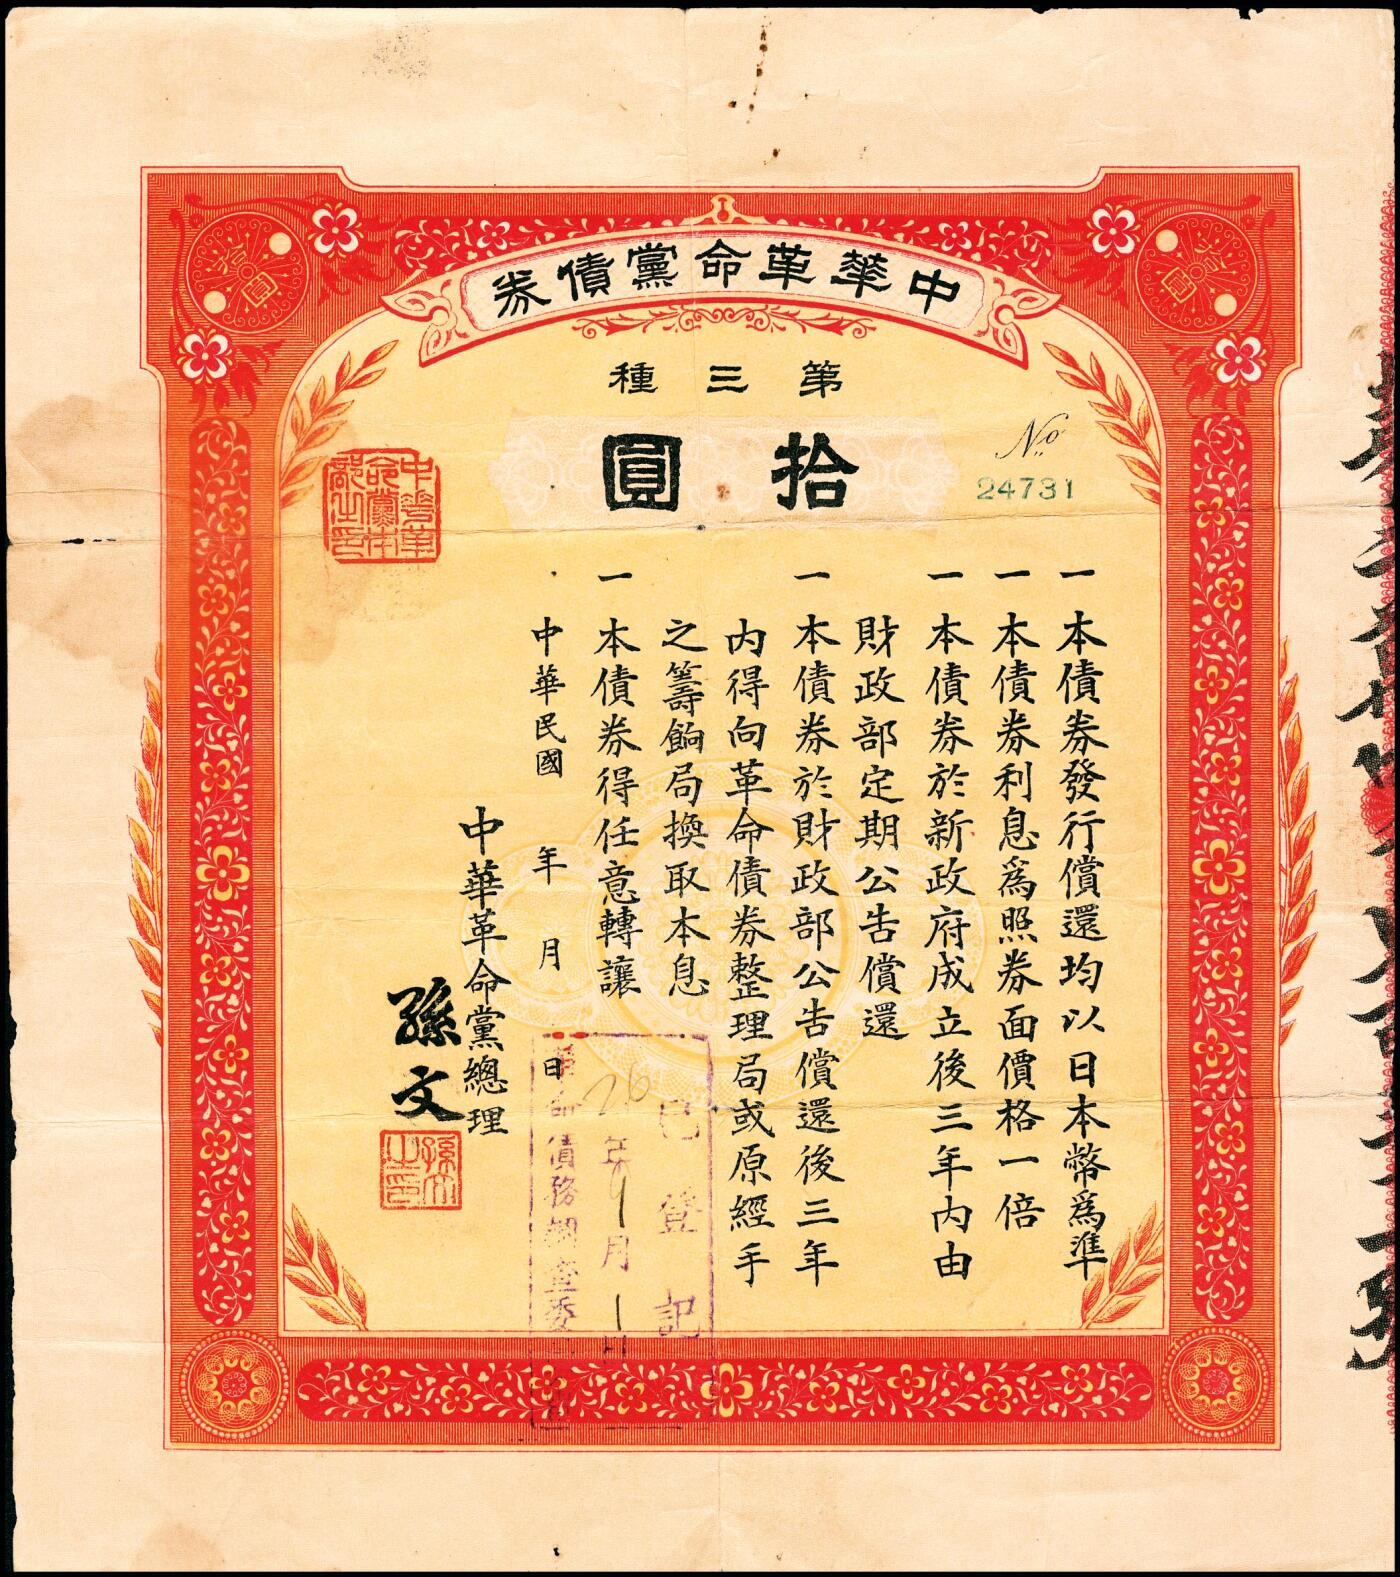 中華革命黨債券
第三種
拾圓
No
24731
一本債券發行償還均以日本幣為準
一本債券利息為照券面價格一倍
一本債券於新政府成立後三年內由
財政部定期公告償還
一本債券於財政部公告償還後三年
內得向革命債券整理局或原經手
之籌餉局換取本息
一本債券得任意轉讓
中華民國 年 月 日
中華革命黨總理
孫文
中華革命黨本部之印
孫文之印
已登記
26年9月1日
革命債務調查委員會